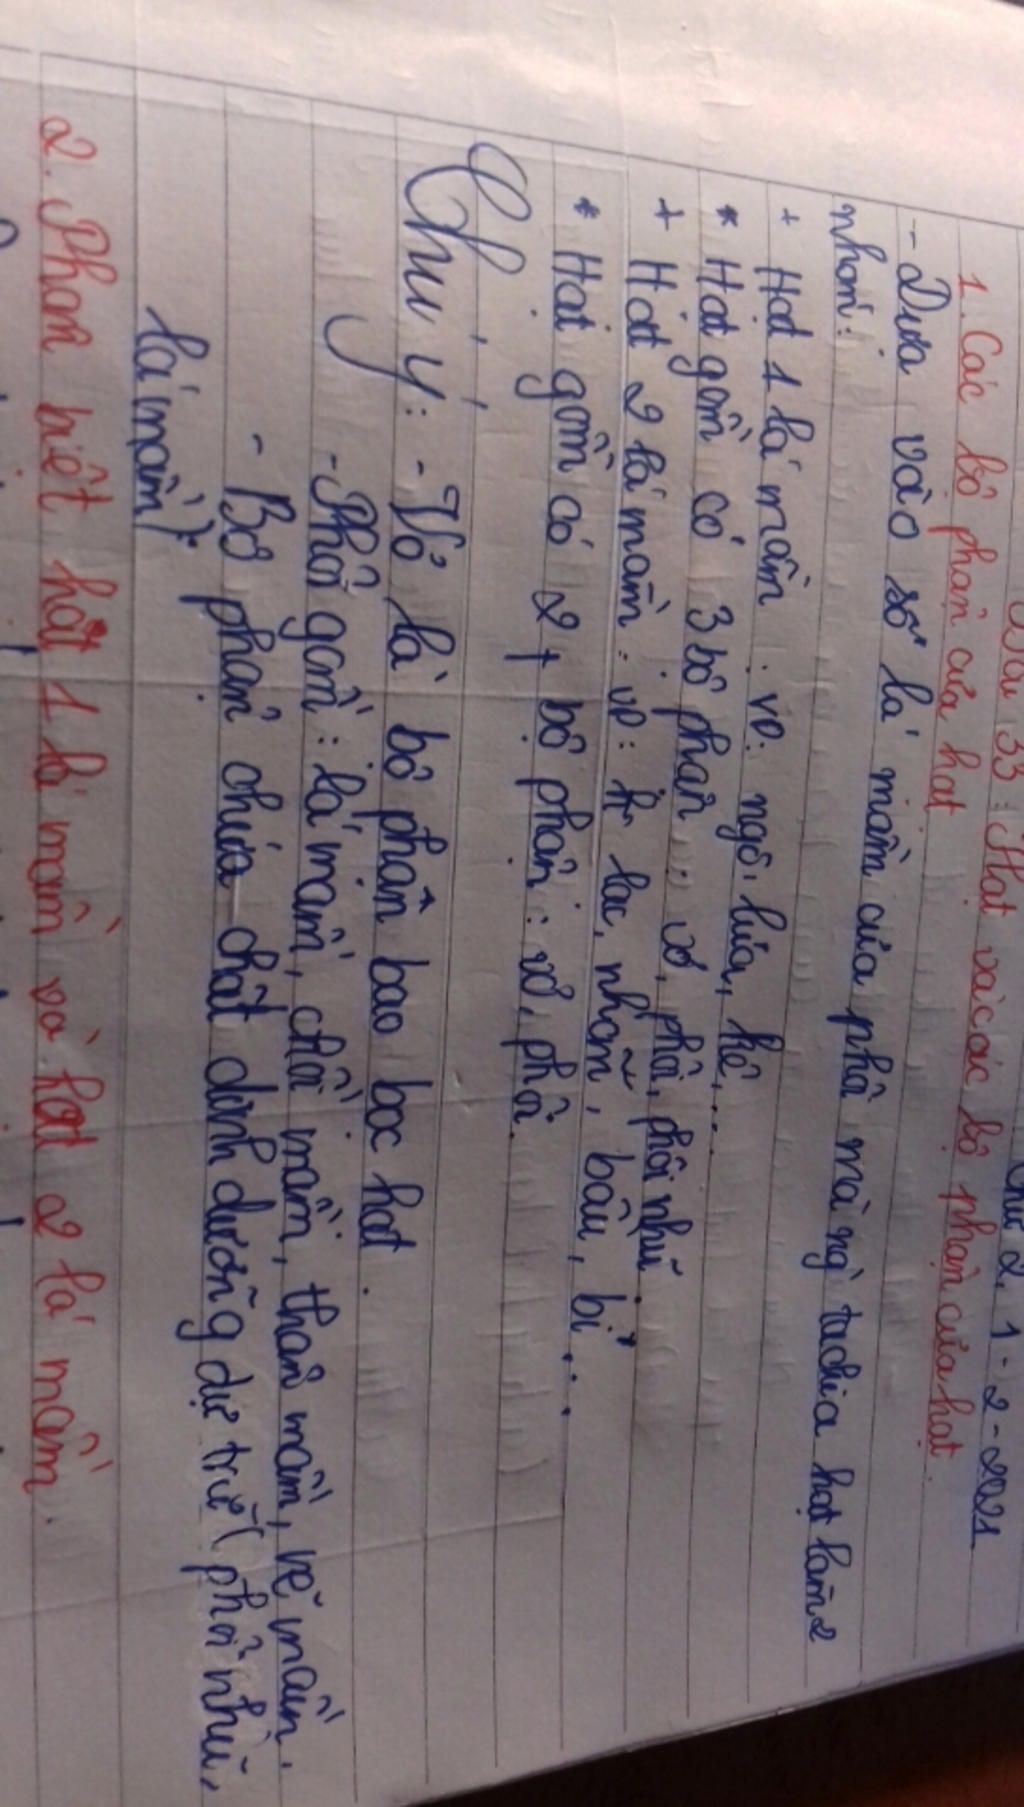 Thứ 2, 1-2-2021
Bài 33: Hạt và các bộ phận của hạt.
1. Các bộ phận của hạt
- Dựa vào số lá mầm của phôi mà ng` ta chia hạt làm 2
nhóm:
+ Hạt 1 lá mầm: VD: ngô, lúa, kê,...
* Hạt gồm có 3 bộ phận: vỏ, phôi, phôi nhũ.
+ Hạt 2 lá mầm: VD: lạc, nhãn, bầu, bí...
* Hạt gồm có 2 bộ phận: vỏ, phôi.
Chú ý: - Vỏ là bộ phận bao bọc hạt.
- Phôi gồm: lá mầm, chồi mầm, thân mầm, rễ mầm.
- Bộ phận chứa chất dinh dưỡng dự trữ (phôi nhũ,
lá mầm).
2. Phân biệt hạt 1 lá mầm và hạt 2 lá mầm.